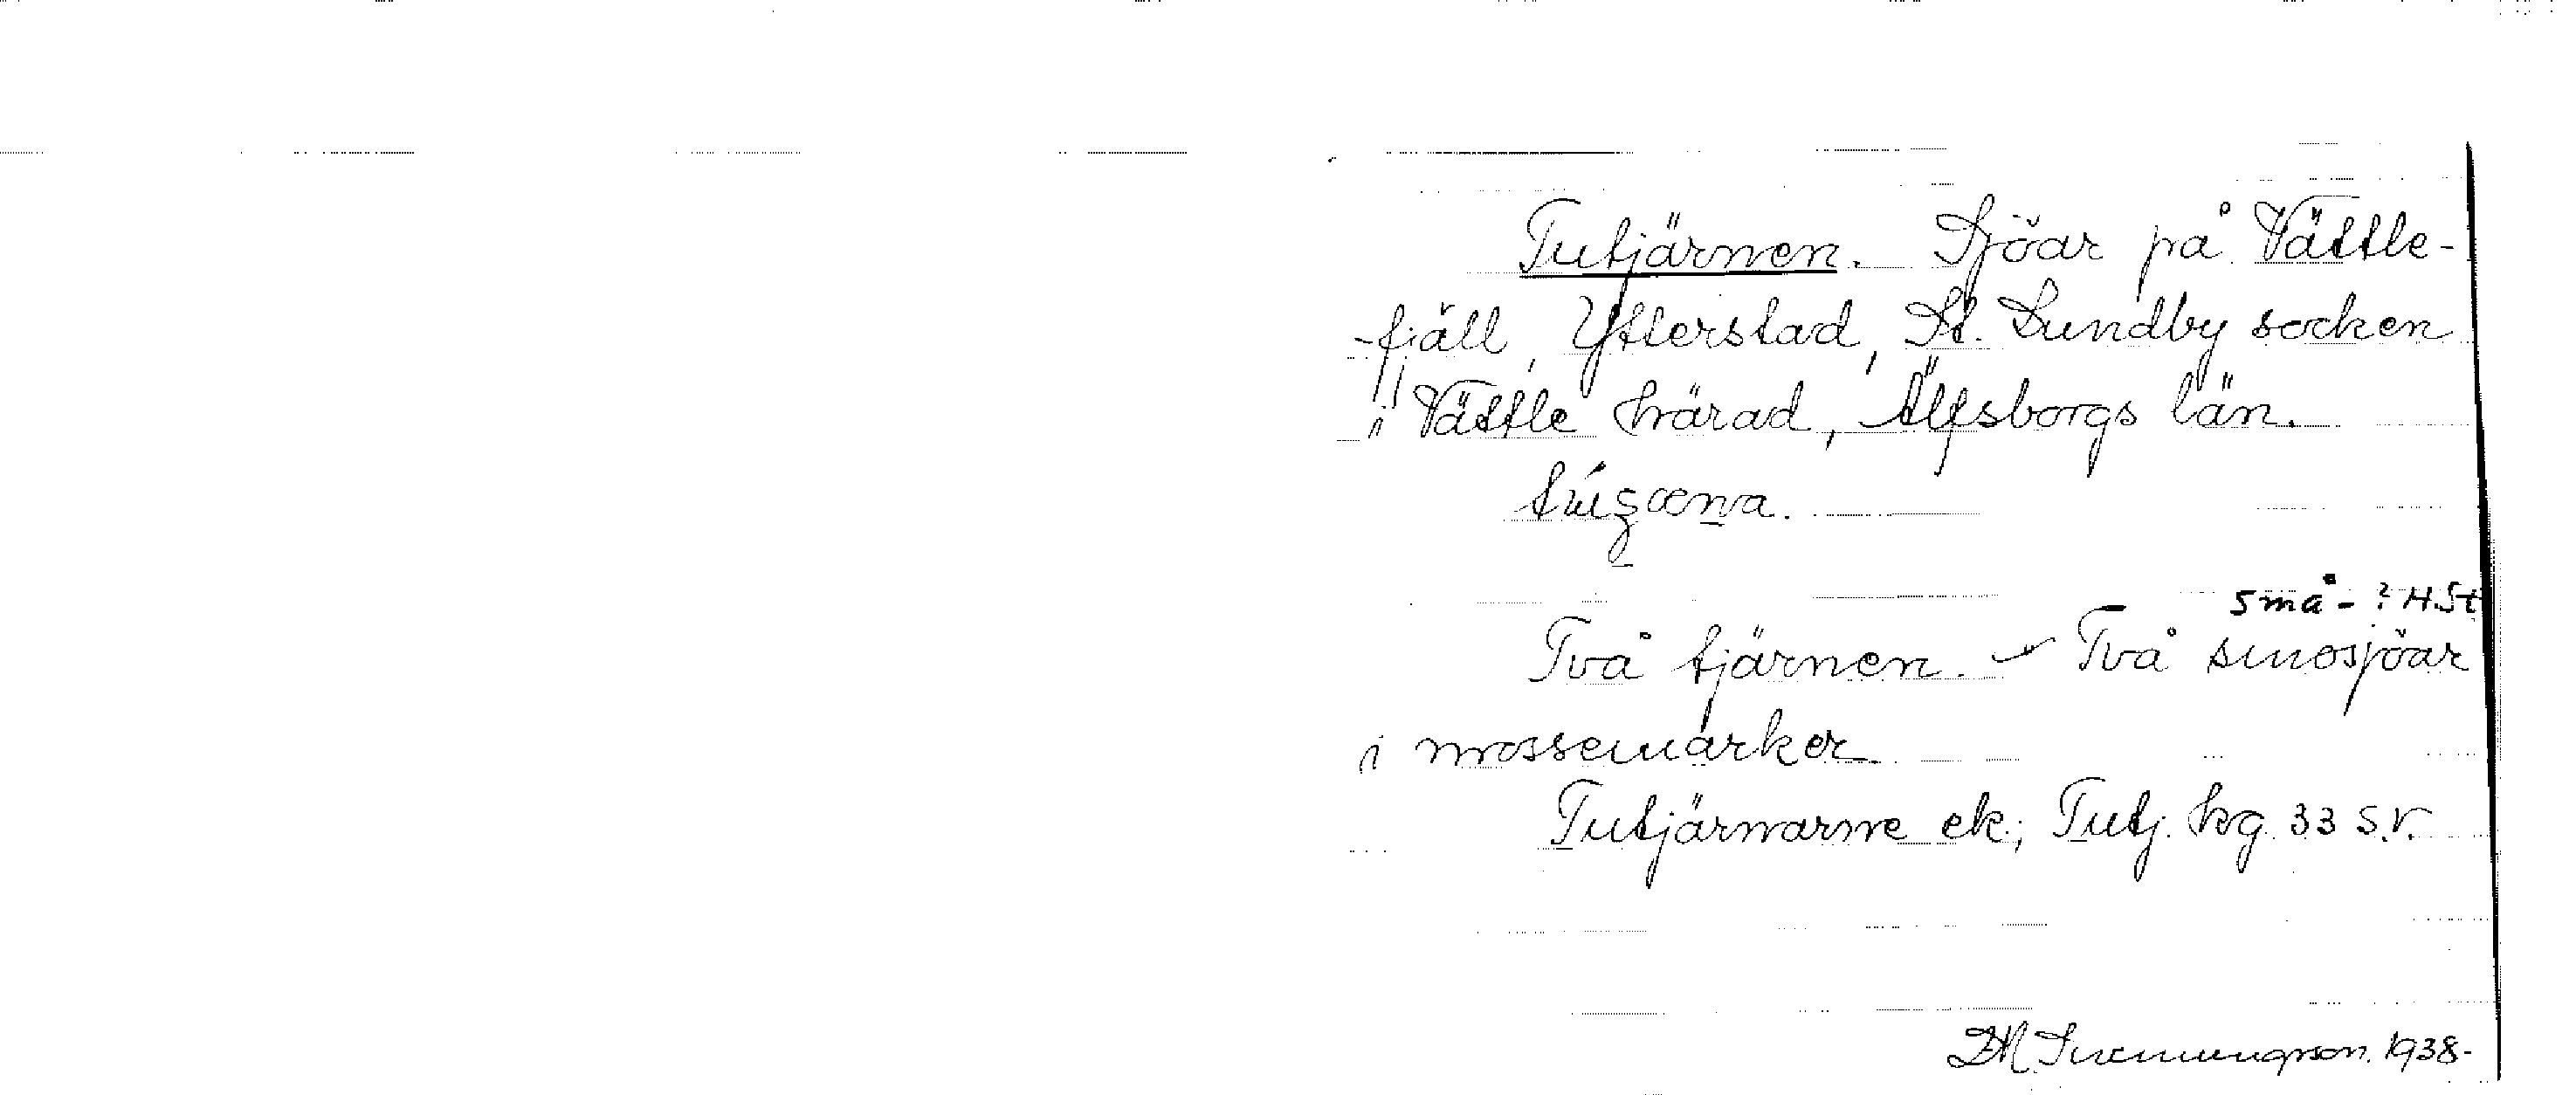 Tutjärnen. Sjöar på Vättle-
-fjäll, Ytterstad, St. Lundby socken
i Vättle härad, Älfsborgs län.
små - ? H.St
Två tjärnen. - Två smosjöar
i mossemarker
Tutjärnarne ek.; Tutj. hg 33 S.V.
1938-